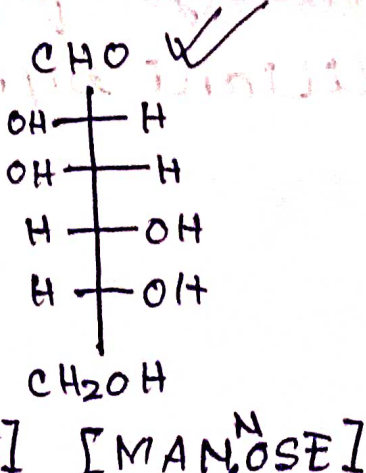 CHO
OH H
OH H
H OH
H OH
CH2OH
] [MANNOSE]